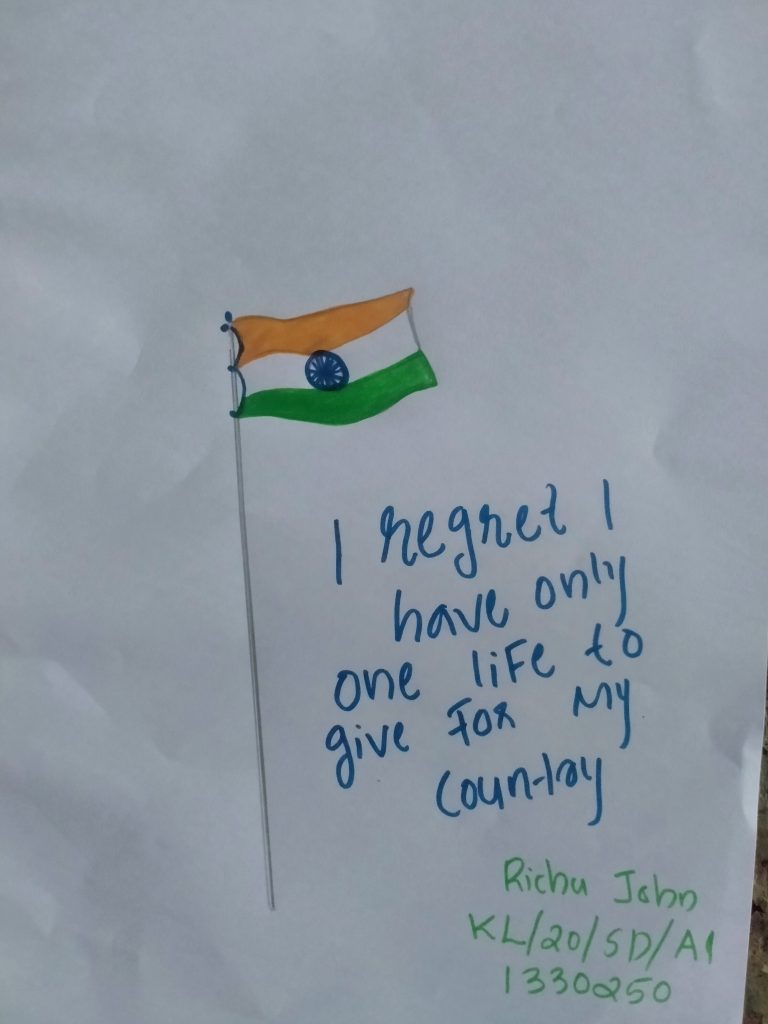 I regret I
have only
one life to
give For My
Country
Richu John
KL/20/SD/A1
1330250